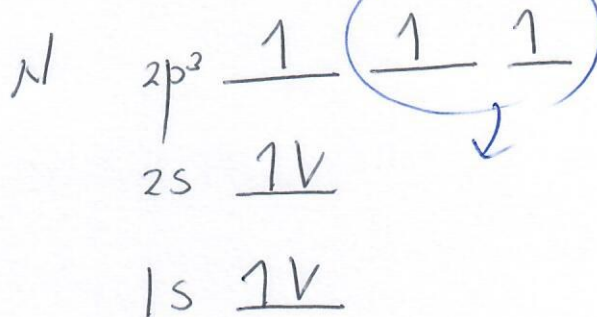 N 2p³ 1 1 1
2s 1V
1s 1V